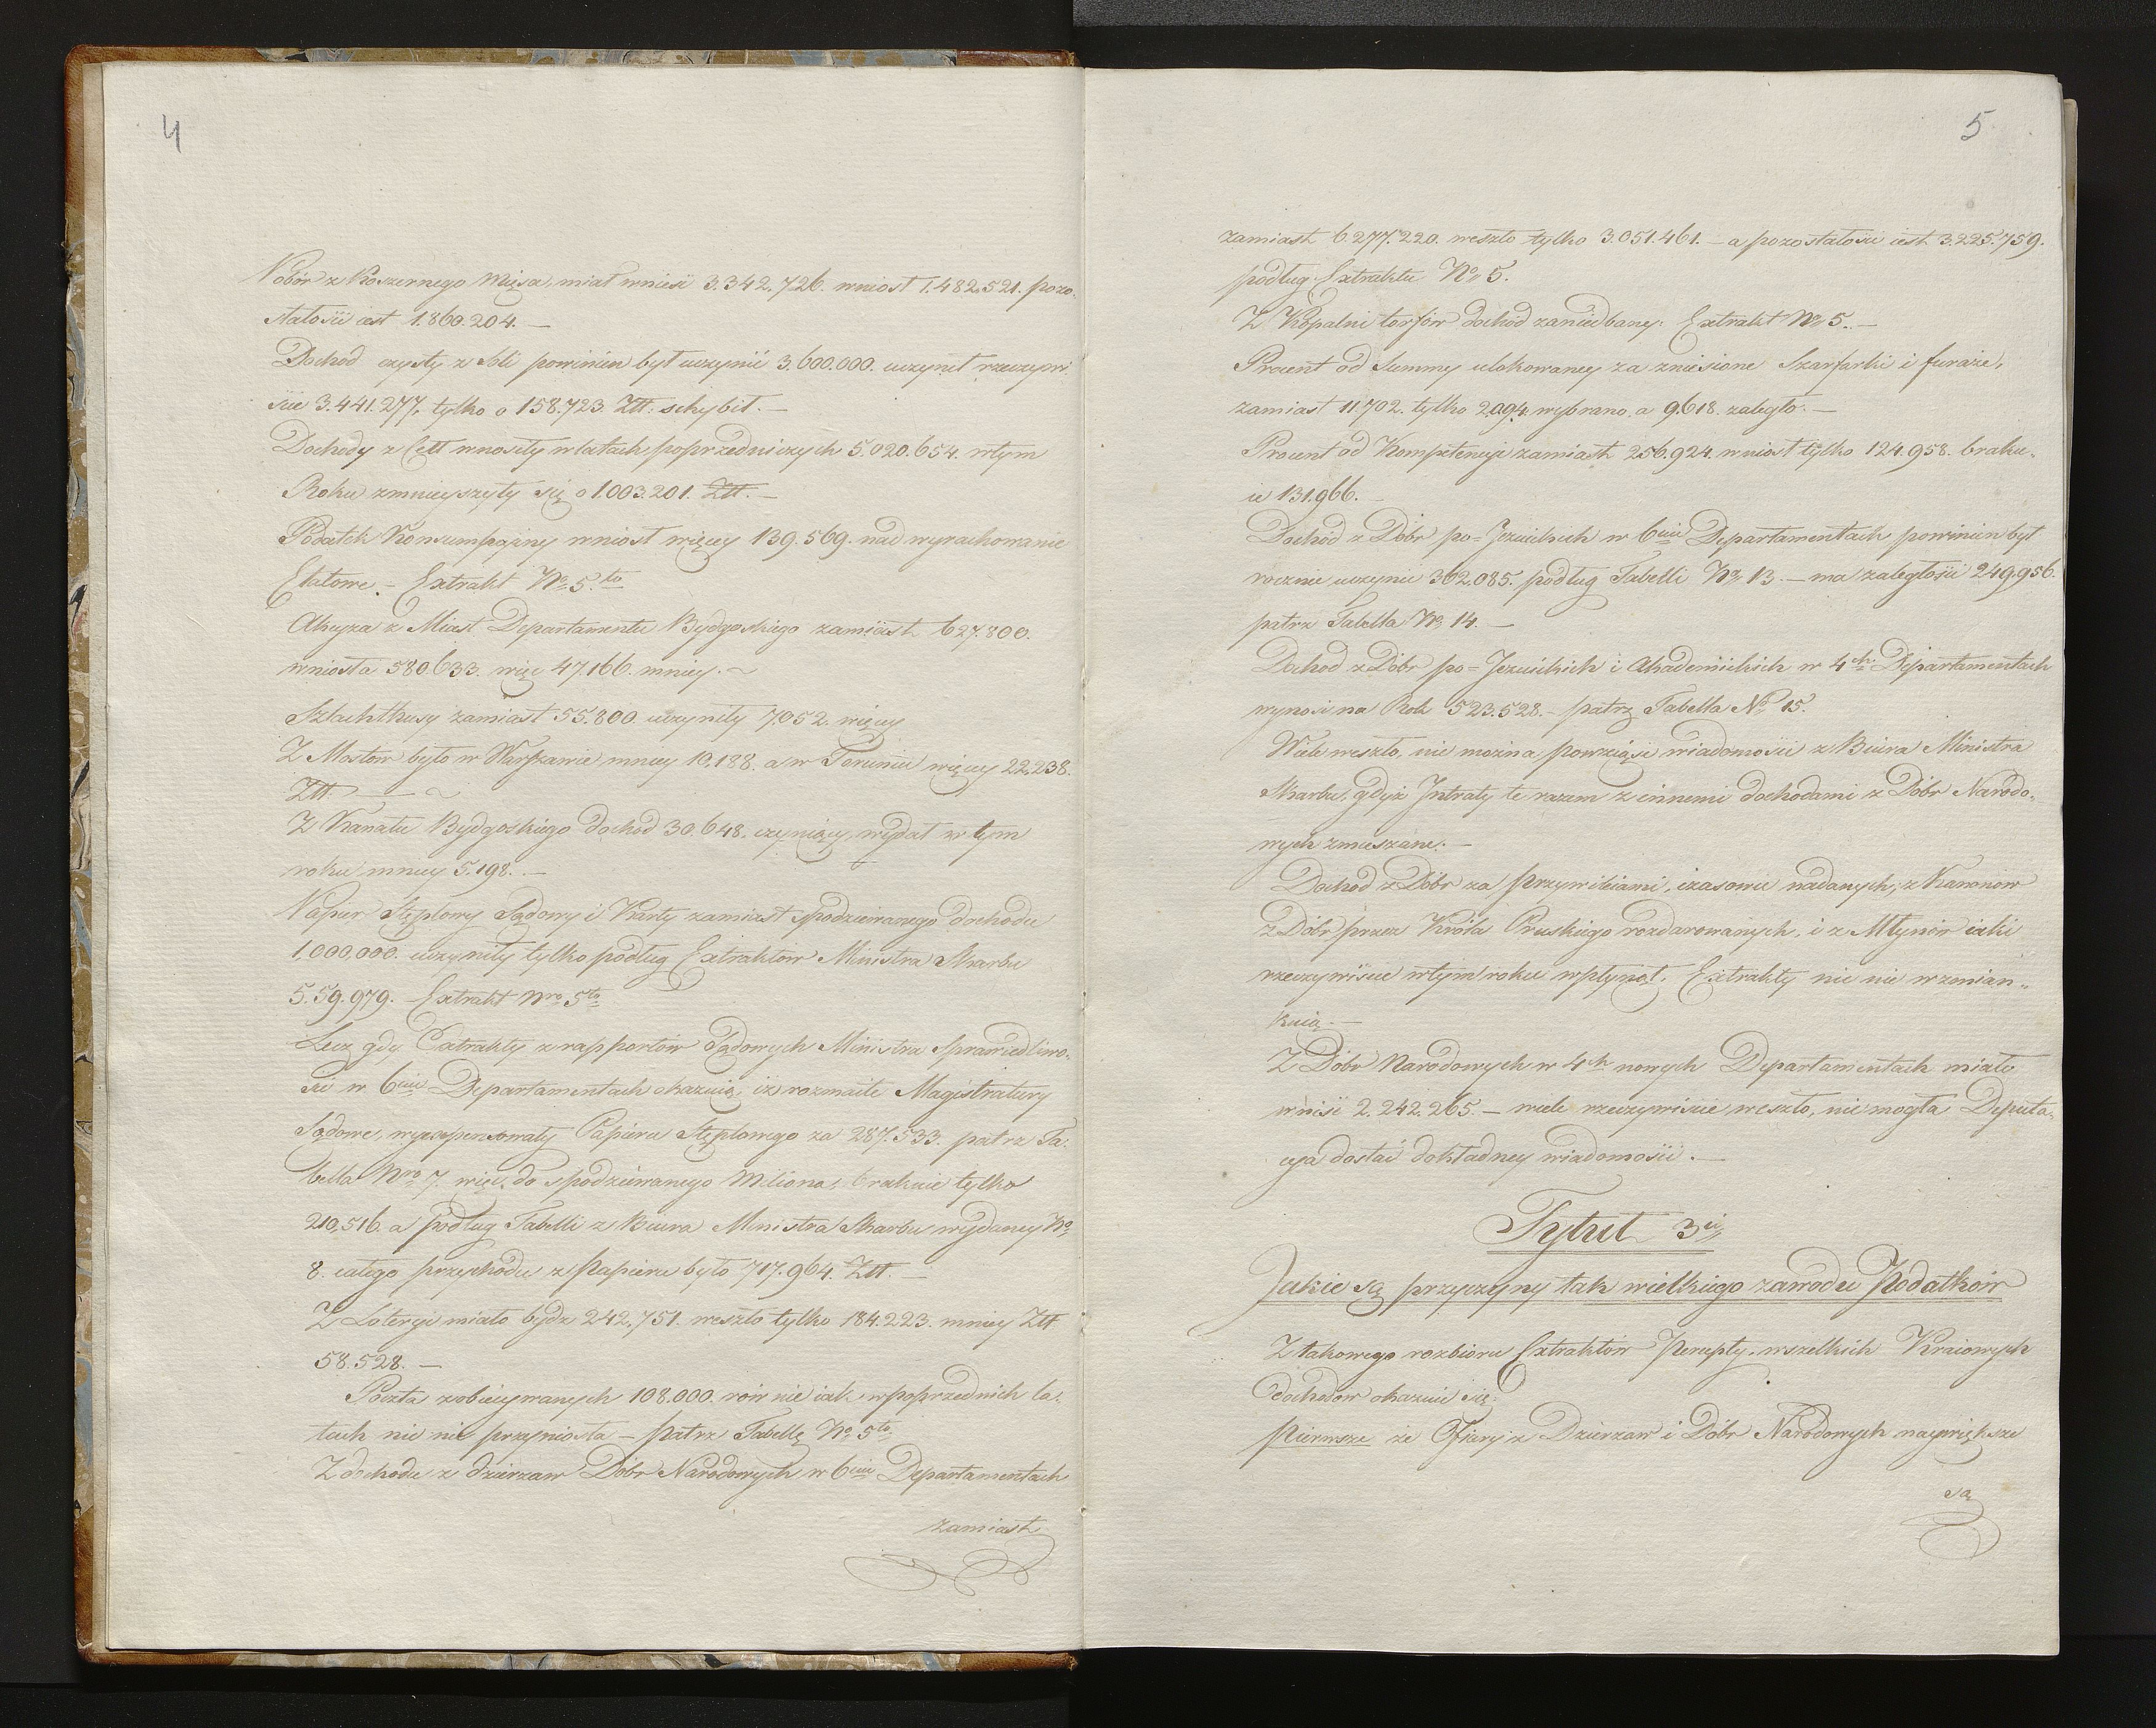 4
Pobór z Koszernego Mięsa, miał wnieść 3.342.726. wniosł 1.482.521. pozo-
stałości iest 1.860.204. —
Dochód czysty z Soli powinien był uczynić 3.600.000. uczynił rzeczywi-
ście 3.441.277. tylko o 158.723. Złł: schybił. —
Dochody z Cełł wnosiły w latach poprzedniczych 5.020.654. w tym
Roku zmnieyszyły się o 1.003.201. Złł. —
Podatek Konsumpcyiny wniosł więcey 139.569. nad wyrachowanie
Etatowe. — Extrakt No 5.to
Akcyza z Miast Departamentu Bydgoskiego zamiast 627.800.
wniosła 580.633. więc 47.166. mniey. ~
Szlachthuzy zamiast 55.800. uczyniły 7.052. więcey
Z Mostów było w Warszawie mniey 10.188. a w Toruniu więcey 22.238.
Złł. — ~
Z Kanału Bydgoskiego dochód 30.648. czyniący, wydał w tym
roku mniey 5.198. —
Papier Stęplowy Sądowy i Karty zamiast spodziewanego dochodu
1,000,000. uczyniły tylko podług Extraktów Ministra Skarbu
5.59.979. Extrakt Nro 5to
Lecz gdy Extrakty z rapportów Sądowych Ministra Sprawiedliwo-
ści w 6ciu Departamentach okazuią, iż rozmaite Magistratury
Sądowe, wyexpensowały Papieru Stęplowego za 287.533. patrz Ta-
bella Nro 7. więc do spodziewanego Miliona, brakuie tylko
210,516. a podług Tabelli z Biura Ministra Skarbu wydaney No
8. całego przychodu z Papieru było 717.964. Złł. —
Z Loteryi miało bydź 242,751. weszło tylko 184.223. mniey Złł
58.528. —
Poczta z obiecywanych 108.000. rów nie iak w poprzednich la-
tach nic nie przyniosła — patrz Tabellę No 5to
Z dochodu z dzierzaw Dóbr Narodowych w 6ciu Departamentach
zamiast
5
zamiast 6.277.220. weszło tylko 3.051.461. — a pozostałości iest 3.225.759.
podług Extraktu No 5.
Z Kopalni torfów dochód zaniedbany: Extrakt No 5. —
Procent od Summy ulokowaney za zniesione Szarfarki i furaże,
zamiast 11.702. tylko 2.094. wybrano. a 9.618. zaległo. —
Procent od Kompetencyi zamiast 256.924. wniosł tylko 124.958. braku-
ie 131.966. —
Dochód z Dóbr po-Jezuickich w 6ciu Departamentach powinien był
rocznie uczynić 302.085. podług Tabelli No 13. — ma zaległości 249.956.
patrz Tabella No 14. —
Dochod z Dóbr po-Jezuickich i Akademickich w 4ch Departamentach
wynosi na Rok 523.528. — patrz Tabella No 15.
Wiele weszło, nie można powziąść wiadomości z Biura Ministra
Skarbu, gdyż Jntraty te razem z innemi dochodami z Dóbr Narodo-
wych zmieszane. —
Dochód z Dóbr za przywileiami, czasowie nadanych, z Kanonów
z Dóbr przez Króla Pruskiego rozdarowanych, i z Młynów iaki
rzeczywiście w tym roku wpłynął. Extrakty nic nie wzmian-
kuią. —
Z Dóbr Narodowych w 4ch nowych Departamentach miało
wniść 2.242.265. — wiele rzeczywiście weszło, nie mogła Deputa-
cya dostać dokładney wiadomości. —
Tytuł 3ci
Jakie są przyczyny tak wielkiego zawodu Podatków
Z takowego rozbioru Extraktów Percepty wszelkich Kraiowych
dochodów okazuie się
Pierwsze że Ofiary z Dzierzaw i Dóbr Narodowych naywiększe
są